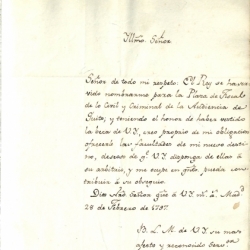 Yllmo Señor
Señor de todo mi respeto: El Rey se ha servido
nombrarme para la Plaza de Fiscal
de lo Civil y Criminal de la Audiencia de
Quito; y teniendo el honor de haber vestido
la beca de V.Y. creo proprio de mi obligacion
ofrecer las facultades de mi nuevo destino,
deseoso de q.e V.Y. disponga de ellas a
su arbitrio, y me ocupe en quanto pueda contribuir
à su obsequio.
Dios
28 de Febrero de
B. L. M. de V.Y. su mas
afecto y reconocido